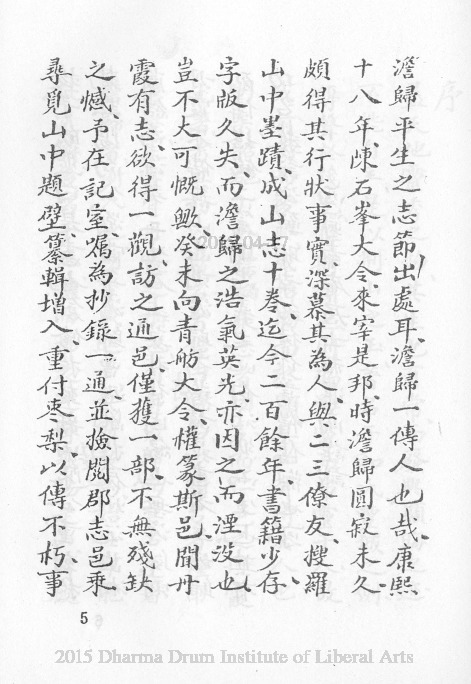 澹歸平生之志節出處耳、澹歸一傳人也哉、康熙
十八年、陳石峯大令、來宰是邦、時澹歸圓寂未久、
頗得其行狀事實、深慕其為人、與二三僚友、搜羅
山中墨蹟、成山志十巻、迄今二百餘年、書籍少存、
字版久失、而澹歸之浩氣英光、亦因之而湮沒也、
豈不大可慨歟、癸未向青舫大令、權篆斯邑、閱丹
霞有志、欲得一觀、訪之通邑、僅獲一部、不無殘缺
之憾、予在記室、囑為抄錄一通、並檢閱郡志邑乘、
尋覓山中題壁、纂輯增入、重付枣梨、以傳不朽、事
5
2015 Dharma Drum Institute of Liberal Arts